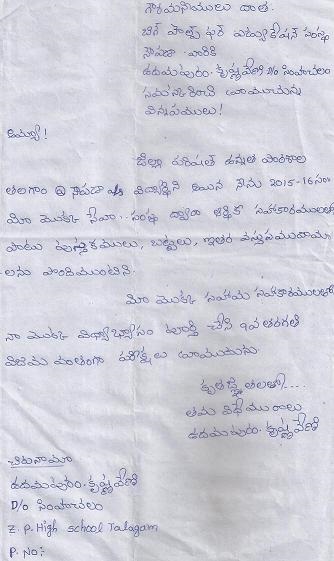 గౌరవనీయులు దాత.
బిగ్ హెల్ప్ ఫర్ ఎడ్యుకేషన్ సంస్థ
నౌపడా వారికి
ఉదమపురం. కృష్ణవేణి D/o సింహాచలం
నమస్కరించి వ్రాయునది
విన్నపములు!
అయ్యా!
జిల్లా పరిషత్ ఉన్నత పాఠశాల
తలగాం @ నౌపడా విద్యార్థిని అయిన నేను 2015-16 సం.
మీ యొక్క సేవా సంస్థ ద్వారా ఆర్థిక సహకారములతో
పాటు పుస్తకములు, బట్టలు, ఇతర వస్తుసముదాయా
లను పొందియుంటిని.
మీ యొక్క సహాయ సహకారములతో
నా యొక్క విద్యాభ్యాసం పూర్తి చేసి 10వ తరగతి
విజయవంతంగా పరీక్షలు వ్రాయుదును.
కృతజ్ఞతలతో....
తమ విధేయురాలు
ఉదమపురం. కృష్ణవేణి
చిరునామా
ఉదమపురం. కృష్ణవేణి
D/o సింహాచలం
Z. P. High school Talagam
P. No:-